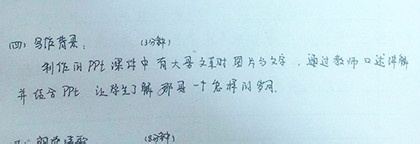 (四) 写作背景： (3分钟)
制作的PPt课件中有大量文革时图片与文字，通过教师口述讲解
并结合PPt 让学生了解那是一个怎样的岁月.
(8分钟)